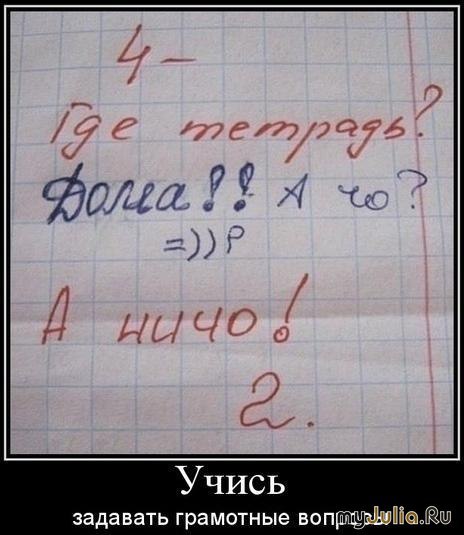 4-
Где тетрадь?
Дома!! А чо?
=))Р
А ничо!
2.
Учись
задавать грамотные вопросы
myJulia.Ru